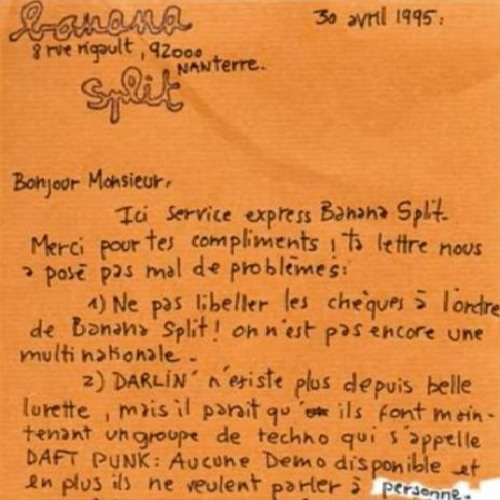 banana
30 avril 1995.
8 rue rigault, 92000
NANterre.
Split
Bonjour Monsieur,
Ici service express Banana Split.
Merci pour tes compliments ! ta lettre nous
a posé pas mal de problèmes:
1) Ne pas libeller les chèques à l'ordre
de Banana Split! on n'est pas encore une
multinationale.
2) DARLIN' n'existe plus depuis belle
lurette, mais il parait qu' ils font main-
tenant un groupe de techno qui s'appelle
DAFT PUNK: Aucune Demo disponible et
en plus ils ne veulent parler à personne.